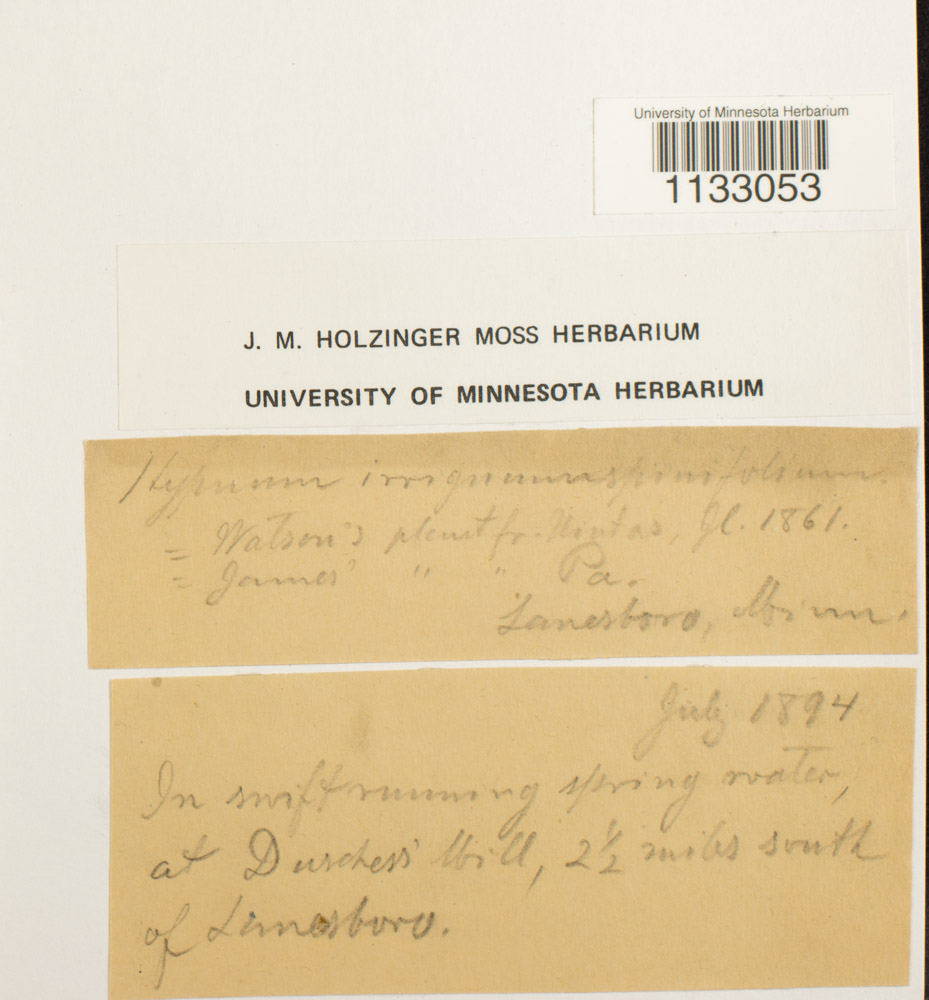 University of Minnesota Herbarium
1133053
J. M. HOLZINGER MOSS HERBARIUM
UNIVERSITY OF MINNESOTA HERBARIUM
Hypnum irriguum spinifolium.
= Watson's plant fr. Uintas, Jl. 1861.
= James' " " Pa.
Lanesboro, Minn.
July 1894
In swift running spring water,
at Duschess' Mill, 2½ miles south
of Lanesboro.